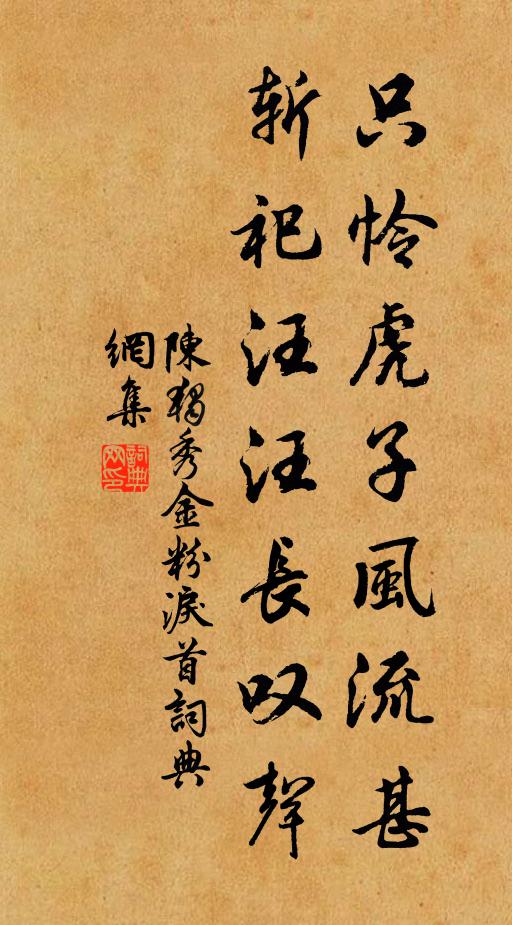 只怜虎子風流甚
斩祀汪汪長叹聲
陳獨秀金粉淚首詞典
網集
詞典
网印